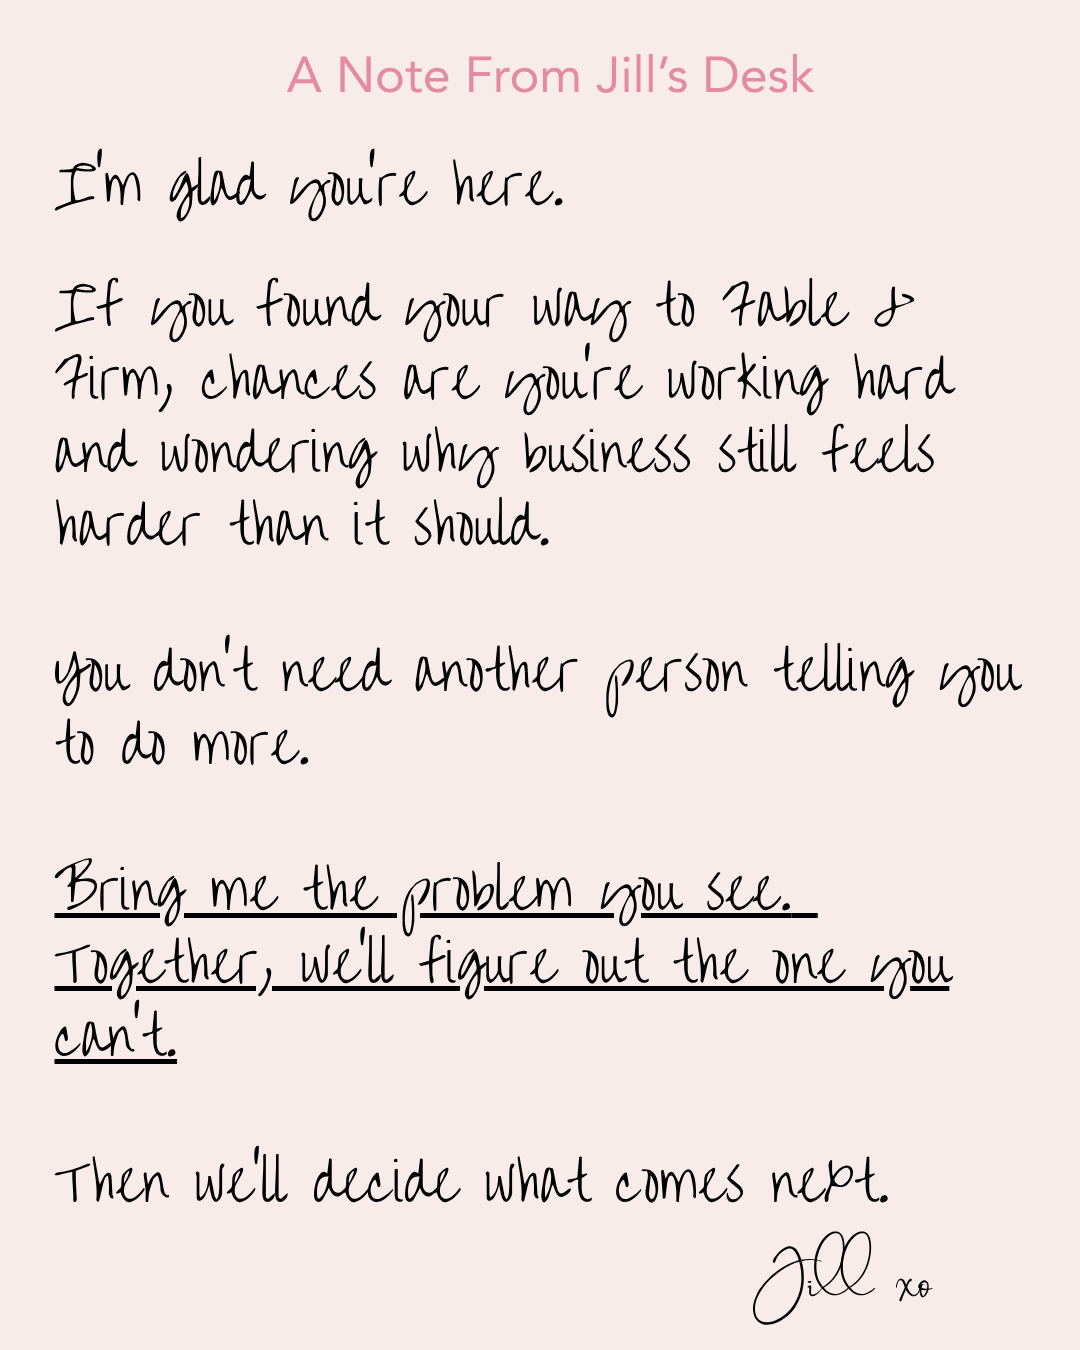 A Note From Jill’s Desk
I'm glad you're here.
If you found your way to Fable &
Firm, chances are you're working hard
and wondering why business still feels
harder than it should.
you don't need another person telling you
to do more.
Bring me the problem you see.
Together, we'll figure out the one you
can't.
Then we'll decide what comes next.
Jill xo